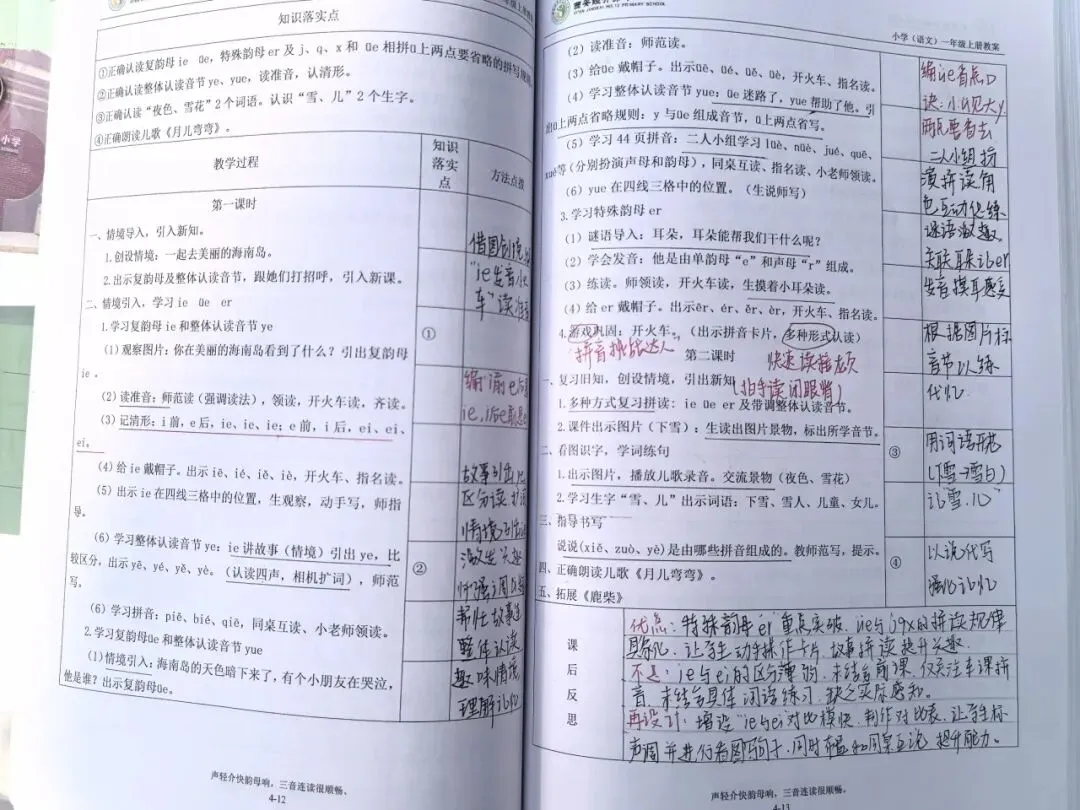 知识落实点
①正确认读复韵母 ie üe，特殊韵母 er 及 j、q、x 和 üe 相拼ü上两点要省略的拼写规则
②正确认读整体认读音节 ye、yue，读准音，认清形。
③正确认读“夜色、雪花”2 个词语。认识“雪、儿”2 个生字。
④正确朗读儿歌《月儿弯弯》。
教学过程
知识
落实
点
方法点拨
第一课时
一、情境导入，引入新知。
1.创设情境：一起去美丽的海南岛。
2.出示复韵母及整体认读音节，跟她们打招呼，引入新课。
二、情境引入，学习 ie üe er
1.学习复韵母 ie 和整体认读音节 ye
①
(1) 观察图片：你在美丽的海南岛看到了什么？引出复韵母
ie 。
(2) 读准音：师范读（强调读法），领读，开火车读，齐读。
(3) 记清形：i 前，e 后，ie、ie、ie；e 前，i 后，ei、ei、
ei。
(4) 给 ie 戴帽子。出示 iē、ié、iě、iè，开火车、指名读。
(5) 出示 ie 在四线三格中的位置，生观察，动手写，师指
导。
(6) 学习整体认读音节 ye：ie 讲故事（情境）引出 ye，比
较区分，出示 yē、yé、yě、yè。（认读四声，相机扩词），师范
写。
②
(6) 学习拼音：piě、bié、qiē，同桌互读、小老师领读。
2.学习复韵母üe 和整体认读音节 yue
(1)情境引入：海南岛的天色暗下来了，有个小朋友在哭泣，
他是谁？出示复韵母üe。
故事引出
区分读
整体认读
趣味情境
理解记忆
声轻介快韵母响，三音连读很顺畅。
4-12
小学（语文）一年级上册教案
(2) 读准音：师范读。
(3) 给üe 戴帽子。出示üē、üé、üě、üè，开火车、指名读。
(4) 学习整体认读音节 yue：üe 迷路了，yue 帮助了他。引
出ü上两点省略规则：y 与üe 组成音节，ü上两点省写。
(5) 学习 44 页拼音：二人小组学习 lüè、nüè、jué、quē、
xuě等（分别扮演声母和韵母），同桌互读、指名读、小老师领读。
(6) yue 在四线三格中的位置。（生说师写）
3.学习特殊韵母 er
(1) 谜语导入：耳朵，耳朵能帮我们干什么呢？
(2) 学会发音：他是由单韵母“e”和声母“r”组成。
(3) 练读。师领读，开火车读，生摸着小耳朵读。
(4) 给 er 戴帽子。出示ēr、ér、ěr、èr，开火车、指名读。
4.游戏巩固：开火车。（出示拼音卡片，多种形式认读）
拼音挑战达人
快速读接龙
第二课时
一、复习旧知，创设情境，引出新知
（拍手读 闭眼背）
1.多种方式复习拼读：ie üe er 及带调整体认读音节。
2.课件出示图片（下雪）：生读出图片景物，标出所学音节。
二、看图识字，学词练句
③
1.出示图片，播放儿歌录音。交流景物（夜色、雪花）
2.学习生字“雪、儿”出示词语：下雪、雪人、儿童、女儿。
三、指导书写
说说(xiě、zuò、yè)是由哪些拼音组成的。教师范写，提示。
④
四、正确朗读儿歌《月儿弯弯》。
五、拓展《鹿柴》
编üe省点口
诀：小ü见大y
两点要省去
二人小组扮
演拼读角
色互动促练
谜语激趣
关联耳朵记er
发音摸耳感受
根据图片标
音节以练
代忆
用词语开花
以说代写
强化记忆
课
后
反
思
优点：特殊韵母er重点突破，üe与jqx的拼读规律
具象化，让学生动手操作卡片，故事拼读提升兴趣。
不足：ie与ei的区分薄弱，未结合前课，仅关注本课拼
音，未结合具体词语练习，缺乏实际感知。
再设计：增设“ie与ei对比模块，制作对比表，让学生标
提升能力。
声轻介快韵母响，三音连读很顺畅。
4-13